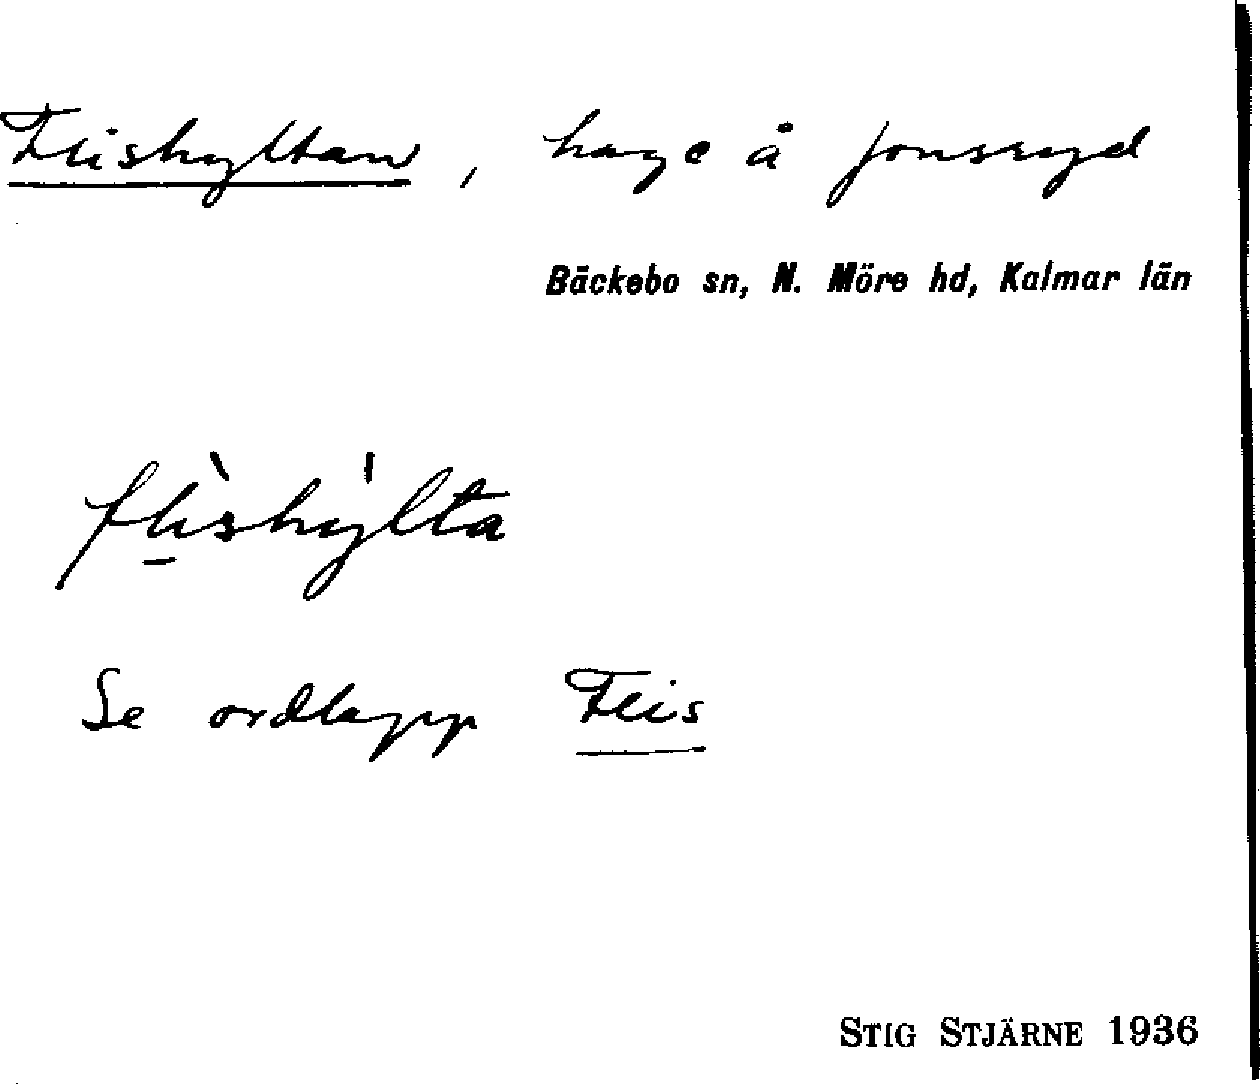 Flishyltan, hage å Jonsryd
Bäckebo sn, N. Möre hd, Kalmar län
flìshy̍lta
Se ordlapp Flis
STIG STJÄRNE 1936